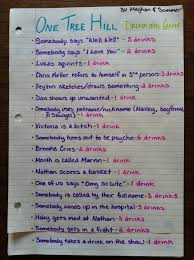 By Meghan & Sommer
ONE TREE HILL DRINKING GAME
- Somebody says "Well Well" - 3 drinks
- Somebody says "I Love You" - 2 drinks
- Lucas squints - 1 drink
- Chris Keller refers to himself in 3rd person - 3 drinks
- Peyton sketches/draws something - 2 drinks
- Dan shows up unwanted - 1 drink
- Use of nickname/pet names (Haley, boyfriend, P. Sawyer) - 1 drink
- Victoria is a bitch - 1 drink
- Somebody turns out to be psycho - 3 drinks
- Brooke Cries - 2 drinks
- Mouth is called Marvin - 1 drink
- Nathan scores a basket - 1 drink
- One of us says "Omg so cute" - 1 drink
- Somebody is called by their full name - 3 drinks
- Somebody winds up in the hospital - 3 drinks
- Haley gets mad at Nathan - 3 drinks
- Somebody gets in a fight - 2 drinks
- Somebody takes a drink on the show - 1 drink